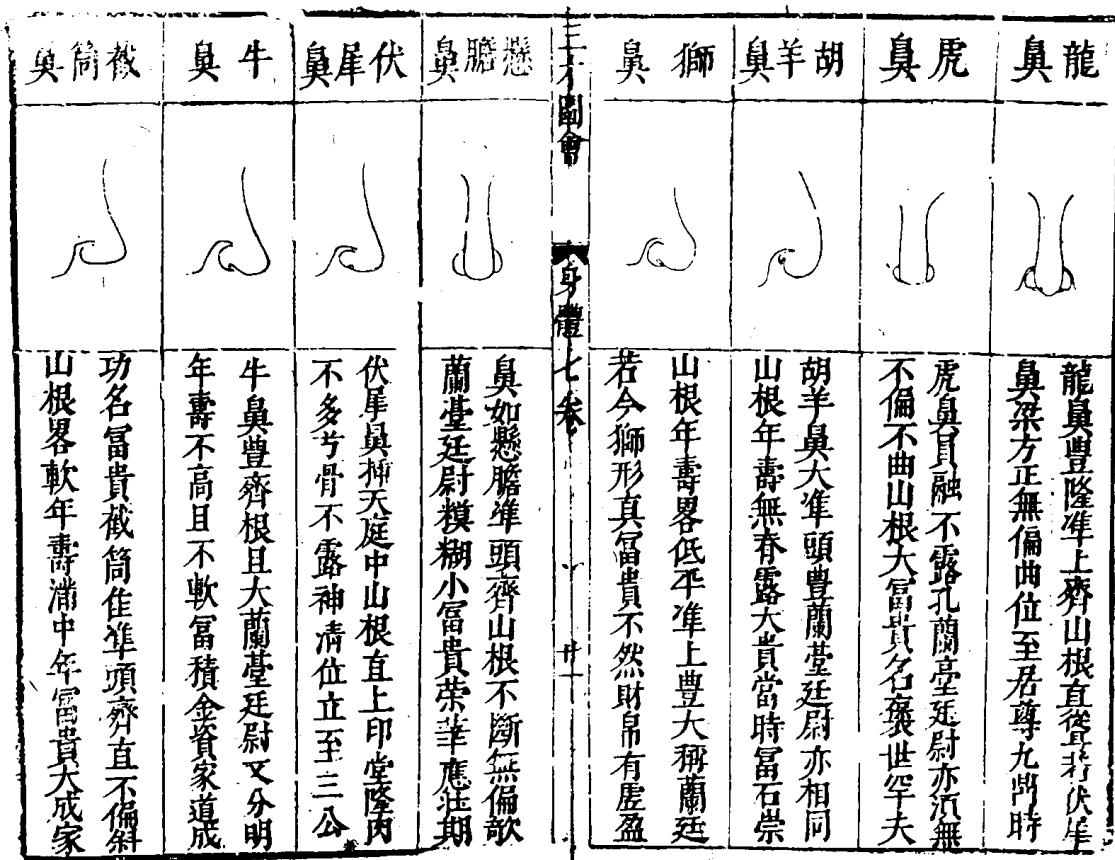 龍鼻
龍鼻豐隆準上齊山根直聳若伏犀
鼻梁方正無偏曲位至居尊九鼎時
虎鼻
虎鼻員融不露孔蘭臺廷尉亦須無
不偏不曲山根大富貴名褒世罕夫
胡羊鼻
胡羊鼻大準頭豊蘭臺廷尉亦相同
山根年壽無脊露大貴當時富石崇
獅鼻
山根年壽畧低平準上豊大稱蘭廷
若合獅形真富貴不然財帛有虛盈
三才圖會
身體七卷
廿一
懸膽鼻
鼻如懸膽準頭齊山根不斷無偏欹
蘭臺廷尉模糊小富貴榮華應壯期
伏犀鼻
伏犀鼻揷天庭中山根直上印堂隆肉
不多兮骨不露神清位立至三公
牛鼻
牛鼻豊齊根且大蘭臺廷尉又分明
年壽不高且不軟富積金資家道成
截筒鼻
功名富貴截筒佳準頭齊直不偏斜
山根畧軟年壽滿中年富貴大成家